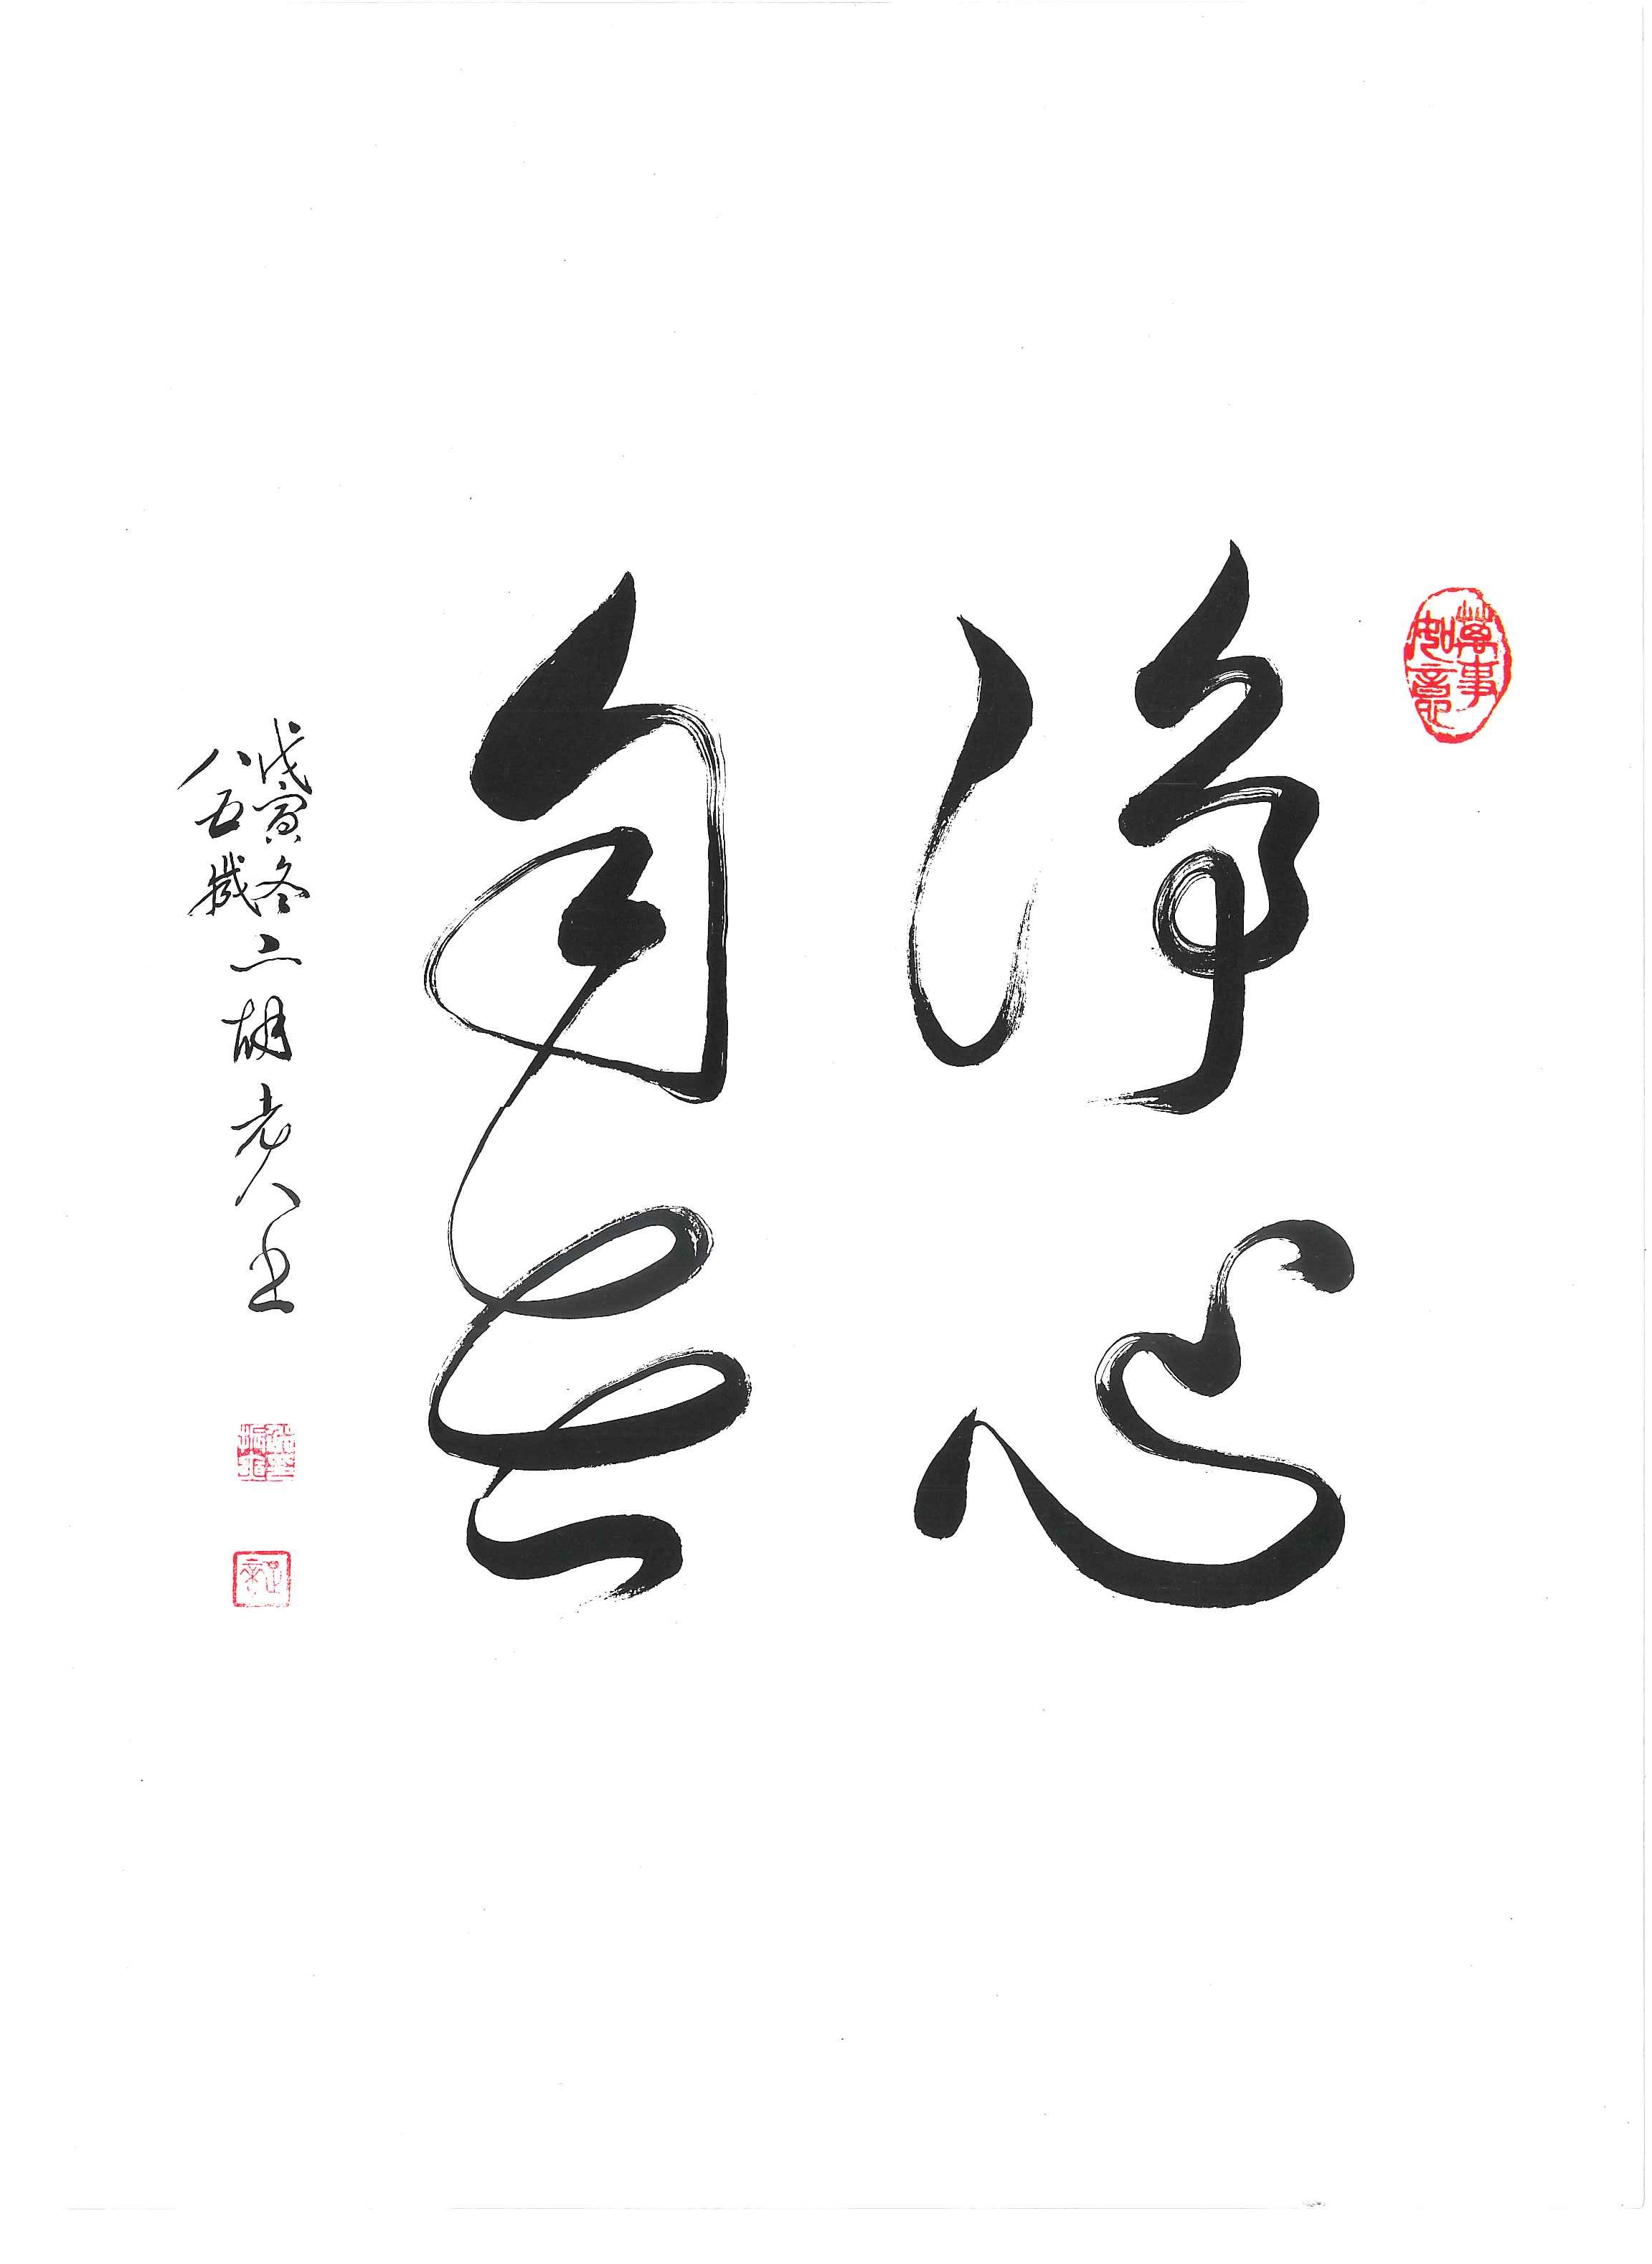 萬事如意
淨心
自
戊寅冬
八五歲
二胡老人书